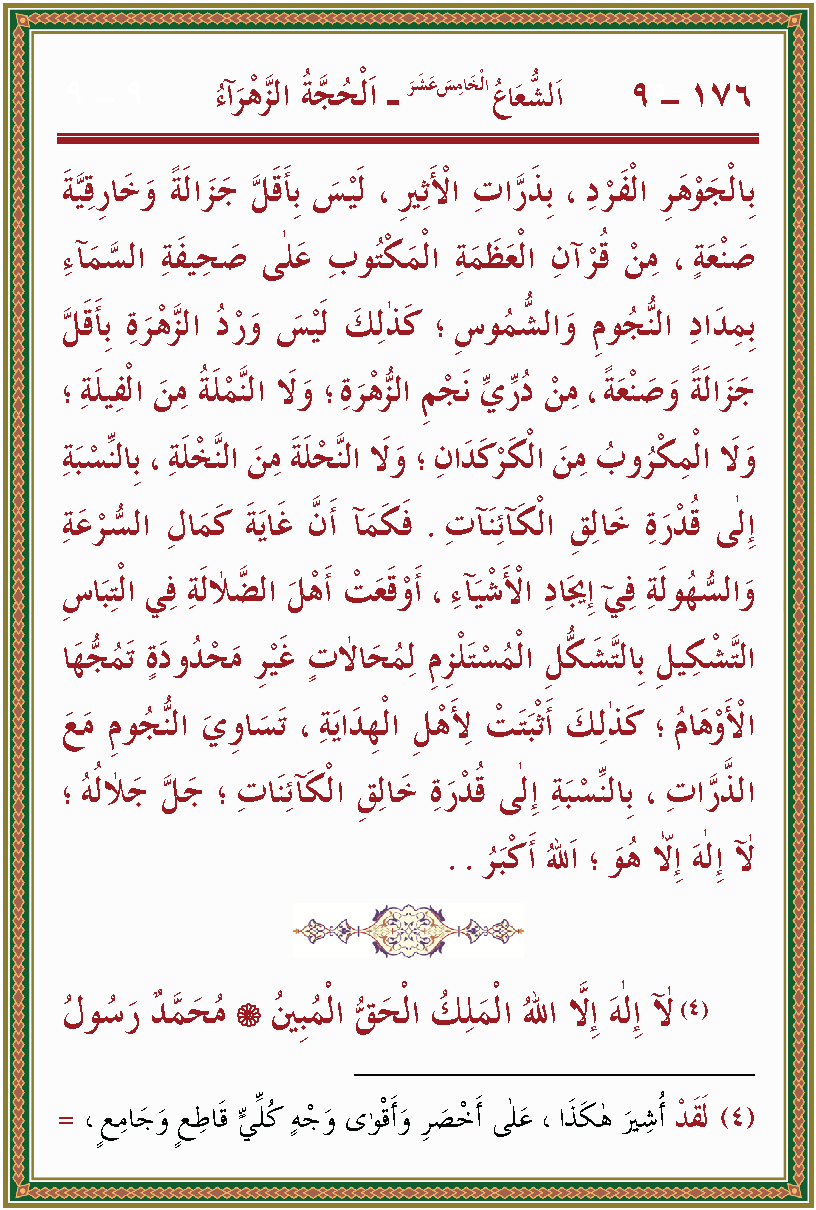 ١٧٦ – ٩ اَلشُّعَاعُ الْخَامِسَ عَشَرَ - اَلْحُجَّةُ الزَّهْرَآءُ ٩ – ٩
بِالْجَوْهَرِ الْفَرْدِ ، بِذَرَّاتِ الْأَثِيرِ ، لَيْسَ بِأَقَلَّ جَزَالَةً وَخَارِقِيَّةَ
صَنْعَةٍ ، مِنْ قُرْآنِ الْعَظَمَةِ الْمَكْتُوبِ عَلٰى صَحِيفَةِ السَّمَآءِ
بِمِدَادِ النُّجُومِ وَالشُّمُوسِ ؛ كَذٰلِكَ لَيْسَ وَرْدُ الزَّهْرَةِ بِأَقَلَّ
جَزَالَةً وَصَنْعَةً ، مِنْ دُرِّيِّ نَجْمِ الزُّهْرَةِ ؛ وَلَا النَّمْلَةُ مِنَ الْفِيلَةِ ؛
وَلَا الْمِكْرُوبُ مِنَ الْكَرْكَدَانِ ؛ وَلَا النَّحْلَةَ مِنَ النَّخْلَةِ ، بِالنِّسْبَةِ
إِلٰى قُدْرَةِ خَالِقِ الْكَآئِنَآتِ . فَكَمَآ أَنَّ غَايَةَ كَمَالِ السُّرْعَةِ
وَالسُّهُولَةِ فِيٓ إِيجَادِ الْأَشْيَآءِ ، أَوْقَعَتْ أَهْلَ الضَّلَالَةِ فِي الْتِبَاسِ
التَّشْكِيلِ بِالتَّشَكُّلِ الْمُسْتَلْزِمِ لِمُحَالَاتٍ غَيْرِ مَحْدُودَةٍ تَمُجُّهَا
الْأَوْهَامُ ؛ كَذٰلِكَ أَثْبَتَتْ لِأَهْلِ الْهِدَايَةِ ، تَسَاوِيَ النُّجُومِ مَعَ
الذَّرَّاتِ ، بِالنِّسْبَةِ إِلٰى قُدْرَةِ خَالِقِ الْكَآئِنَاتِ ؛ جَلَّ جَلَالُهُ ؛
لَآ إِلٰهَ إِلَّا هُوَ ؛ اَللّٰهُ أَكْبَرُ . .
(٤) لَآ إِلٰهَ إِلَّا اللّٰهُ الْمَلِكُ الْحَقُّ الْمُبِينُ ۞ مُحَمَّدٌ رَسُولُ
(٤) لَقَدْ أُشِيرَ هٰكَذَا ، عَلٰى أَخْصَرِ وَأَقْوٰى وَجْهٍ كُلِّيٍّ قَاطِعٍ وَجَامِعٍ ، =